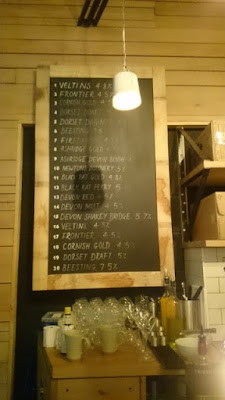 1 VELTINS 4.8%
2 FRONTIER 4.5%
3 CORNISH GOLD 4.5
4 DORSET
5 DORSET
6 BEESTING 7.5%
7
8 ASHRIDGE GOLD
9 ASHRIDGE DEVON
10
11 BLACK RAT GOLD
12 BLACK RAT PERRY 5
13 DEVON RED 4.5
14 DEVON MIST 4.5%
15 DEVON SHAKEY BRIDGE 5.7%
16 VELTINS 4.8%
17 FRONTIER 4.5%
18 CORNISH GOLD 4.5%
19 DORSET DRAFT 5%
20 BEESTING 7.5%